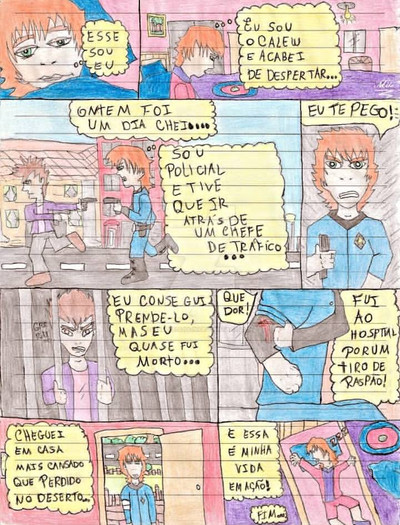 ESSE
SOU
EU
EU SOU
O CALEW
E ACABEI
DE DESPERTAR...
ONTEM FOI
UM DIA CHEIO...
SOU
POLICIAL
E TIVE
QUE IR
ATRÁS DE
UM CHEFE
DE TRÁFICO
...
EU TE PEGO!
EU CONSEGUI
PRENDE-LO,
MAS EU
QUASE FUI
MORTO...
QUE
DOR!
FUI
AO
HOSPITAL
POR UM
TIRO DE
RASPÃO!
CHEGUEI
EM CASA
MAIS CANSADO
QUE PERDIDO
NO DESERTO...
E ESSA
É MINHA
VIDA
EM AÇÃO!
FIM...